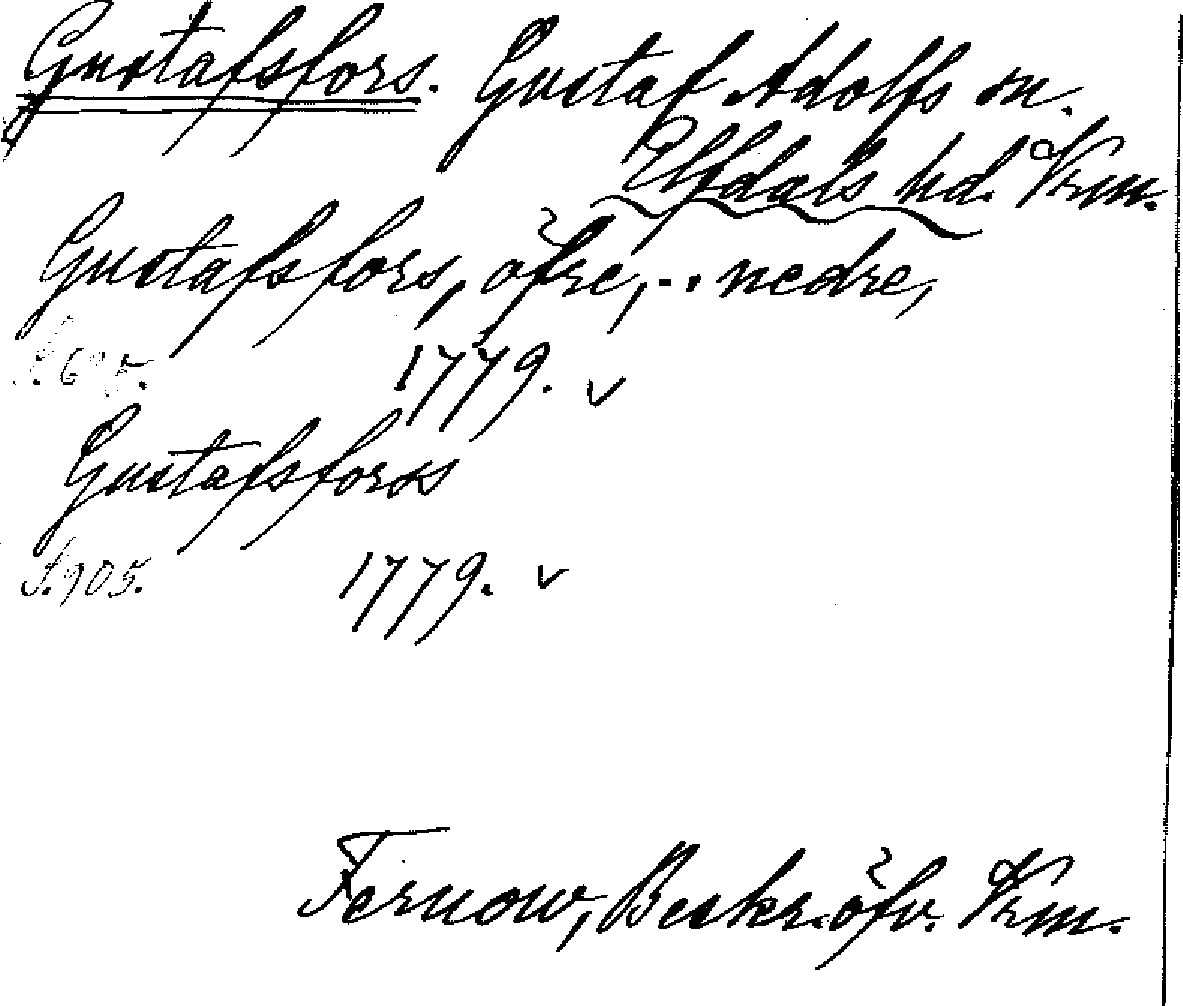 Gustafsfors. Gustaf Adolfs sn.
Elfdals hd. Vrm.
Gustafsfors, öfre, .. nedre,
1779. v
Gustafsforss
S. 905. 1779. v
Fernow, Beskr. öfv. Vrm.